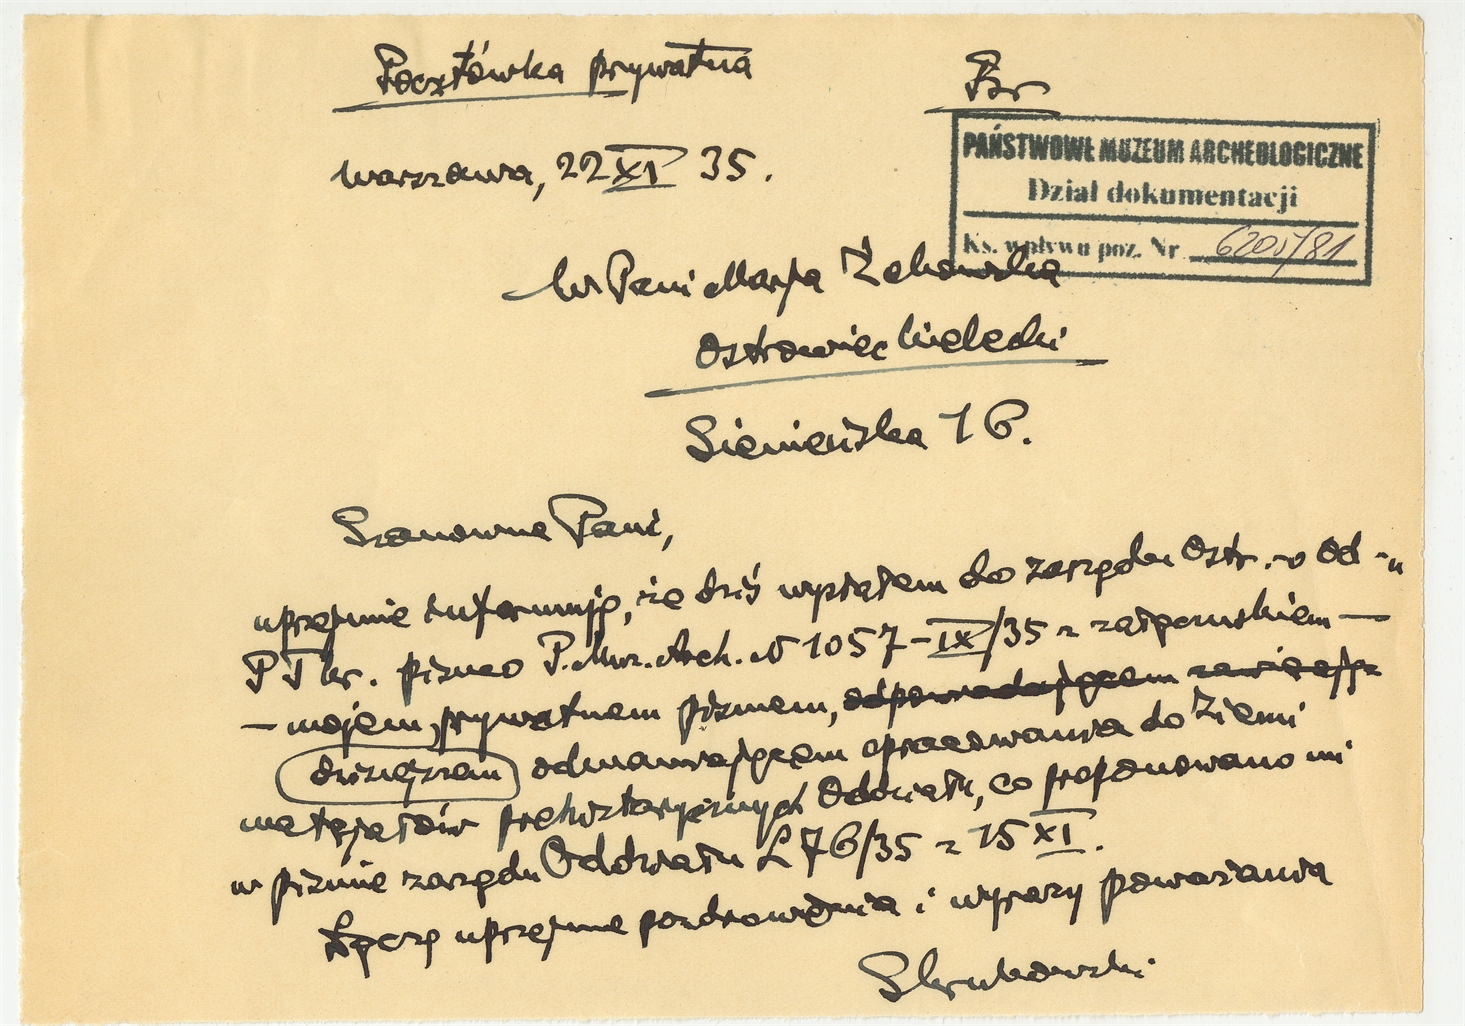 Pocztówka prywatna
Kr
PAŃSTWOWE MUZEUM ARCHEOLOGICZNE
Dział dokumentacji
Ks. wpływu poz. Nr 6205/81
Warszawa, 22 XI 35.
W Pani Marja Żakowska
Ostrowiec Kielecki
Sienieńska 16.
Szanowna Pani,
uprzejmie informuję, że dziś wysłałem do zarządu Ostr.-o Od-u
P T Kr. pismo P. Muz. Arch. N 1057-IX/35 z załącznikiem —
— mojem prywatnem pismem, odpowiadającem
dzisiejszem odmawiającem opracowania do Ziemi
materjałów prehistorycznych Oddziału, co proponowano mi
w piśmie zarządu Oddziału L 76/35 z 15 XI.
Łączę uprzejme pozdrowienia i wyrazy poważania
SKrukowski